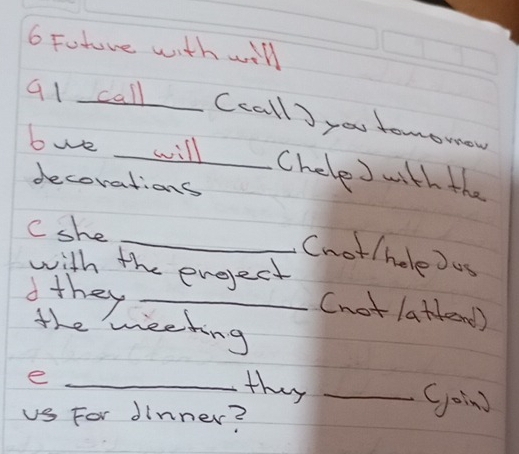 6 Future with will
a I call (call) you tomorrow
b we will (help) with the
decorations
c she ________ (not/help) us
with the project
d they ________ (not/attend)
the meeting
e ________ they ____ (join)
us For dinner?